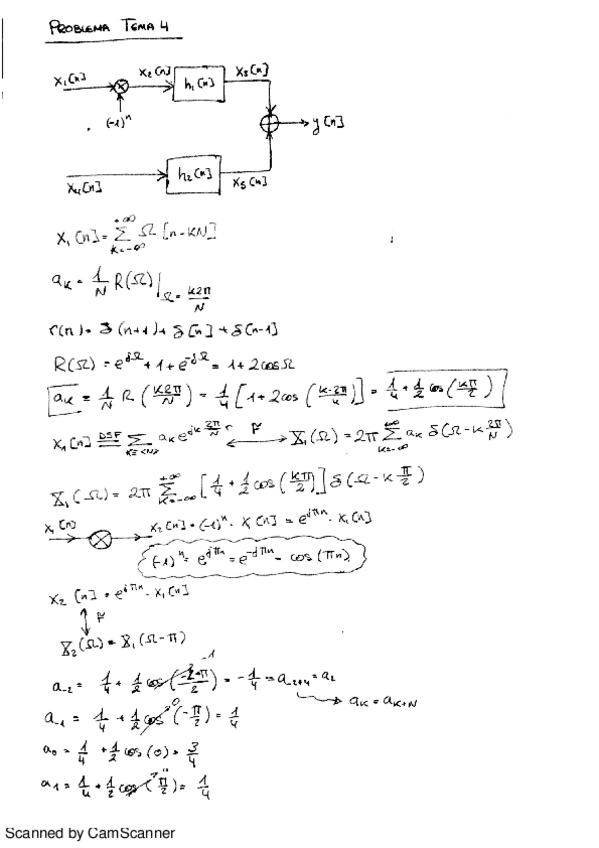 PROBLEMA TEMA 4
x₁[n] x₂[n] h₁[n] x₃[n]
(-1)ⁿ
y[n]
x₄[n] h₂[n] x₅[n]
x₁[n] = Σ_{k=-∞}^{+∞} Ω[n-kN]
a_k = 1/N R(Ω)|_{Ω = k2π/N}
r(n) = δ(n+1) + δ[n] + δ[n-1]
R(Ω) = e^{jΩ} + 1 + e^{-jΩ} = 1 + 2cosΩ
a_k = 1/N R(k2π/N) = 1/4 [1 + 2cos(k·2π/4)] = 1/4 + 1/2 cos(kπ/2)
x₁[n] DSF= Σ_{k=<N>} a_k e^{jk 2π/N n} ↔ F X₁(Ω) = 2π Σ_{k=-∞}^{+∞} a_k δ(Ω - k 2π/N)
X₁(Ω) = 2π Σ_{k=-∞}^{+∞} [1/4 + 1/2 cos(kπ/2)] δ(Ω - k π/2)
x₁[n] x₂[n] = (-1)ⁿ · x₁[n] = e^{jπn} · x₁[n]
(-1)ⁿ = e^{jπn} = e^{-jπn} = cos(πn)
x₂[n] = e^{jπn} · x₁[n]
F
X₂(Ω) = X₁(Ω-π)
a₋₂ = 1/4 + 1/2 cos(-2π/2) -1 = -1/4 = a₋₂₊₄ = a₂
a_k = a_{k+N}
a₋₁ = 1/4 + 1/2 cos(-π/2) 0 = 1/4
a₀ = 1/4 + 1/2 cos(0) = 3/4
a₁ = 1/4 + 1/2 cos(π/2) = 1/4
Scanned by CamScanner